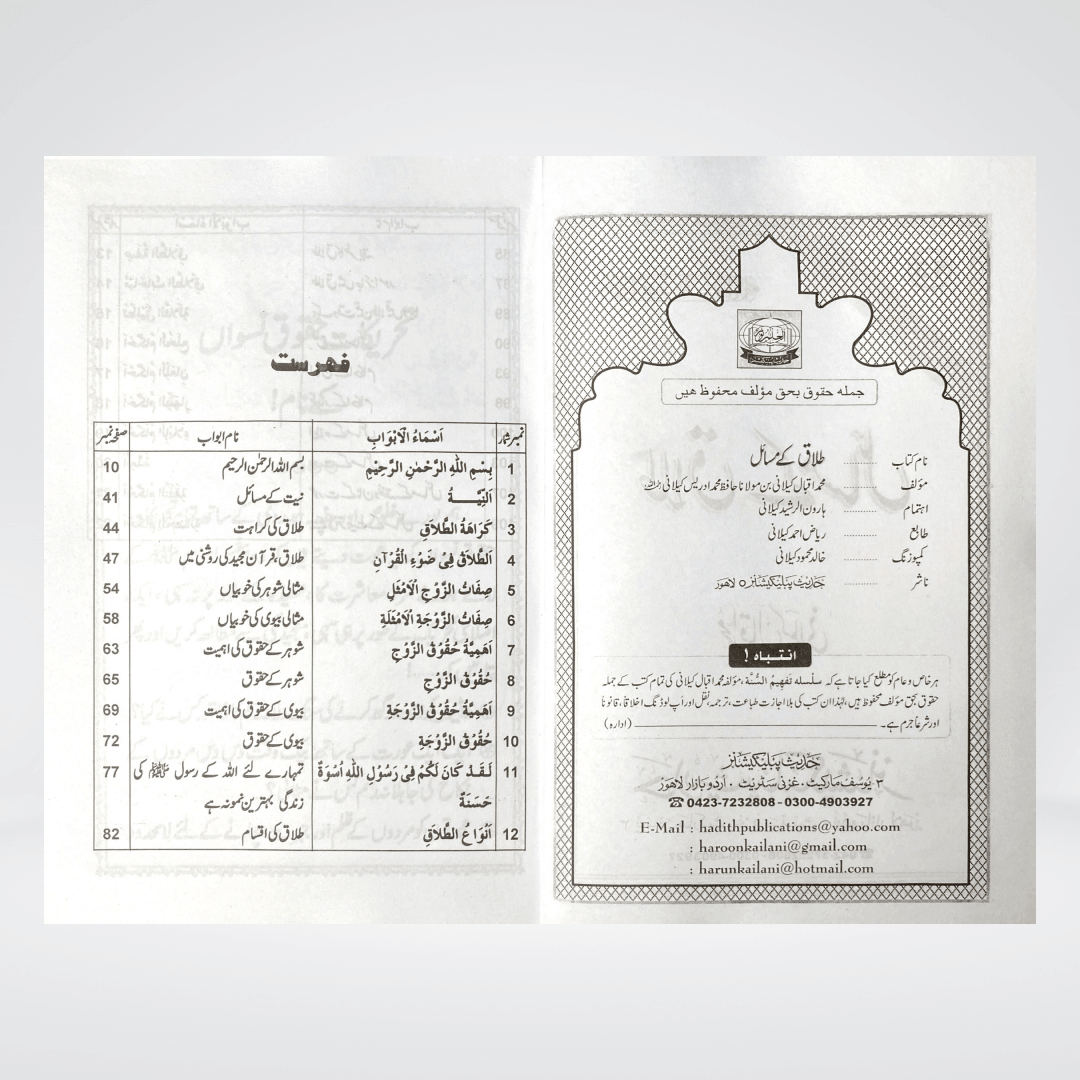 جملہ حقوق بحق مؤلف محفوظ ھیں
نام کتاب ............ طلاق کے مسائل
مؤلف ............ محمد اقبال کیلانی بن مولانا حافظ محمد ادریس کیلانی رحمہ اللہ
اہتمام ............ ہارون الرشید کیلانی
طابع ............ ریاض احمد کیلانی
کمپوزنگ ............ خالد محمود کیلانی
ناشر ............ حدیث پبلیکیشنز ٥ لاہور
انتباہ !
ہر خاص و عام کو مطلع کیا جاتا ہے کہ سلسلہ تَفْهِيمُ السُّنَّة ، مؤلفہ محمد اقبال کیلانی کی تمام کتب کے جملہ
حقوق بحق مؤلف محفوظ ہیں، لہٰذا ان کتب کی بلا اجازت طباعت، ترجمہ، نقل اور اَپ لوڈنگ اخلاقاً، قانوناً
اور شرعاً جرم ہے۔ (ادارہ)
حدیث پبلیکیشنز
٢ یُوسف مارکیٹ ۰ غزنی سٹریٹ ۰ اُردو بازار لاہور
☎ 0423-7232808 - 0300-4903927
E-Mail : hadithpublications@yahoo.com
: haroonkailani@gmail.com
: harunkailani@hotmail.com
فہرست
نمبر شمار اَسْمَاءُ الْاَبْوَابِ نام ابواب صفحہ نمبر
1 بِسْمِ اللّٰهِ الرَّحْمٰنِ الرَّحِيْمِ بسم اللہ الرحمٰن الرحیم 10
2 اَلنِّيَّــــةُ نیت کے مسائل 41
3 كَرَاهَةُ الطَّلاَقِ طلاق کی کراہت 44
4 اَلطَّلاَقُ فِىْ ضَوْءِ الْقُرْآنِ طلاق، قرآن مجید کی روشنی میں 47
5 صِفَاتُ الزَّوْجِ الْاَمْثَلِ مثالی شوہر کی خوبیاں 54
6 صِفَاتُ الزَّوْجَةِ الْاَمْثَلَةِ مثالی بیوی کی خوبیاں 58
7 اَهَمِيَّةُ حُقُوْقِ الزَّوْجِ شوہر کے حقوق کی اہمیت 63
8 حُقُوْقُ الزَّوْجِ شوہر کے حقوق 65
9 اَهَمِيَّةُ حُقُوْقِ الزَّوْجَةِ بیوی کے حقوق کی اہمیت 69
10 حُقُوْقُ الزَّوْجَةِ بیوی کے حقوق 72
11 لَـقَـدْ كَانَ لَكُمْ فِىْ رَسُوْلِ اللّٰهِ اُسْوَةٌ تمہارے لئے اللہ کے رسول ﷺ کی 77
حَسَنَةٌ زندگی بہترین نمونہ ہے
12 اَنْوَاعُ الطَّلاَقِ طلاق کی اقسام 82